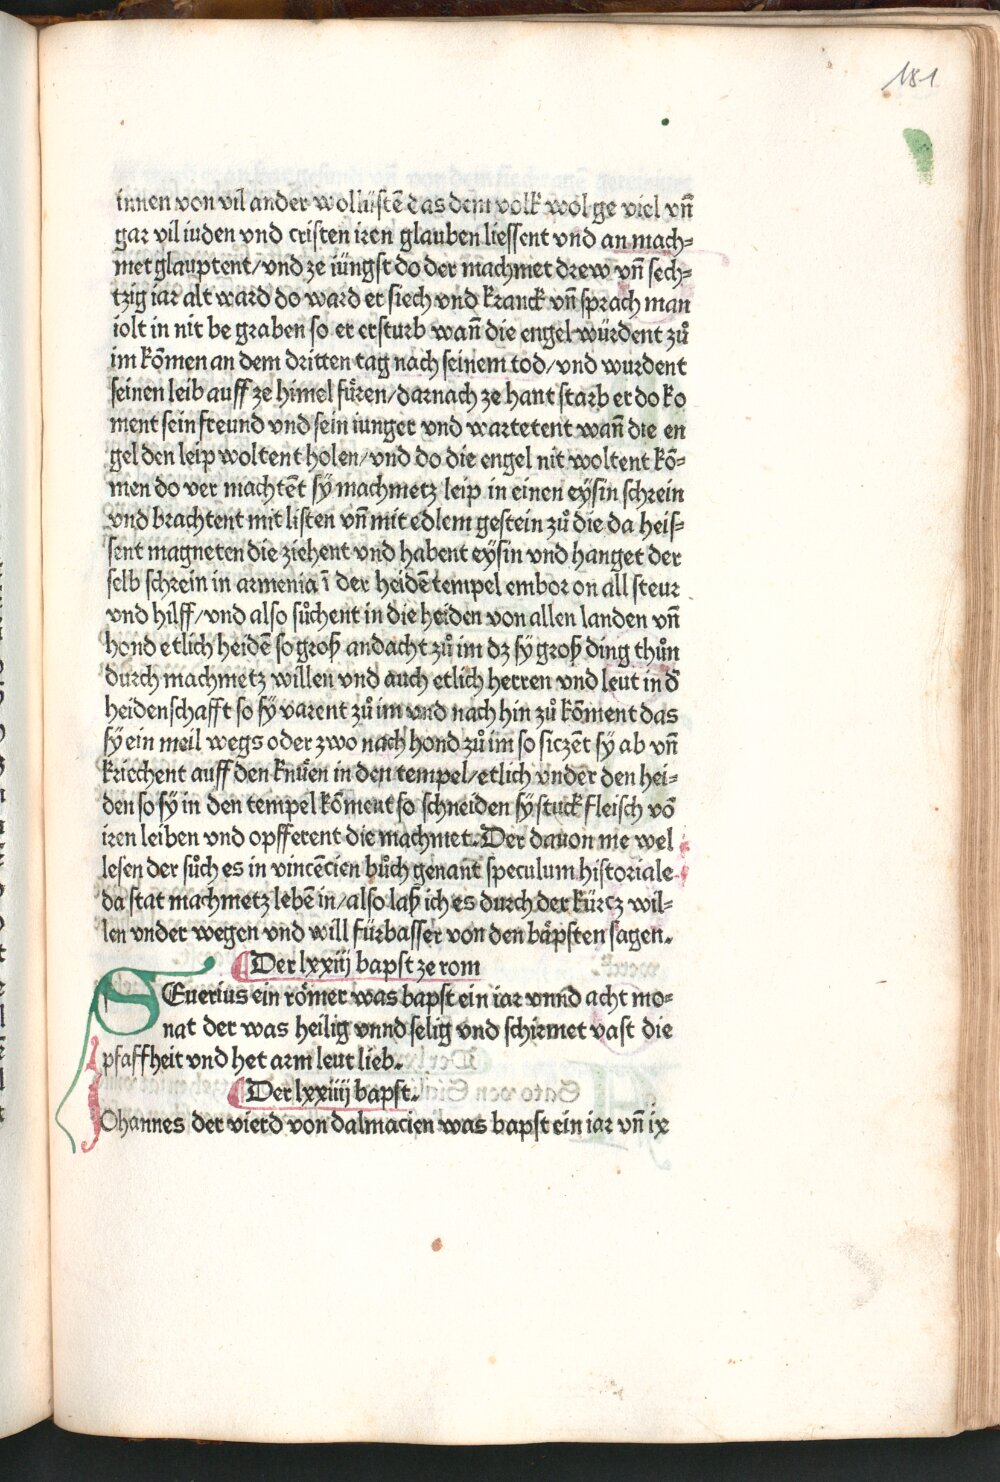 181
innen von vil ander wollüstē das dem volk wol ge viel vn̄
gar vil iuden vnd cristen iren glauben liessent vnd an mach⸗
met glauptent/vnd ze iüngst do der machmet drew vn̄ sech⸗
tzig iar alt ward do ward er siech vnd kranck vn̄ sprach man
solt in nit be graben so er ersturb wan̄ die engel würdent zů
im kōmen an dem dritten tag nach seinem tod/vnd wurdent
seinen leib auff ze himel füren/darnach ze hant starb er do ko
ment sein freund vnd sein iunger vnd wartetent wan̄ die en
gel den leip woltent holen/vnd do die engel nit woltent kō⸗
men do ver machtēt sÿ machmetz leip in einen eÿsin schrein
vnd brachtent mit listen vn̄ mit edlem gestein zů die da heis⸗
sent magneten die ziehent vnd habent eÿsin vnd hanget der
selb schrein in armenia ī der heidē tempel embor on all steur
vnd hilff/vnd also sůchent in die heiden von allen landen vn̄
hond etlich heidē so groß andacht zů im dz sÿ groß ding thůn
durch machmetz willen vnd auch etlich herren vnd leut in d̄
heidenschafft so sÿ varent zů im vnd nach hin zů kōment das
sÿ ein meil wegs oder zwo nach hond zů im so siczēt sÿ ab vn̄
kriechent auff den knüen in den tempel/etlich vnder den hei⸗
den so sÿ in den tempel kōment so schneiden sÿ stuck fleisch vō
iren leiben vnd opfferent die machmet. Der dauon me wel
lesen der sůch es in vincēcien bůch genant̄ speculum historiale
da stat machmetz lebē in/also laß ich es durch der kürcz wil⸗
len vnder wegen vnd will fürbasser von den bäpsten sagen.
Der lxxiij bapst ze rom
SEuerius ein römer was bapst ein iar vnnd acht mo⸗
nat der was heilig vnnd selig vnd schirmet vast die
pfaffheit vnd het arm leut lieb.
Der lxxiiij bapst.
IOhannes der vierd von dalmacien was bapst ein iar vn̄ ix